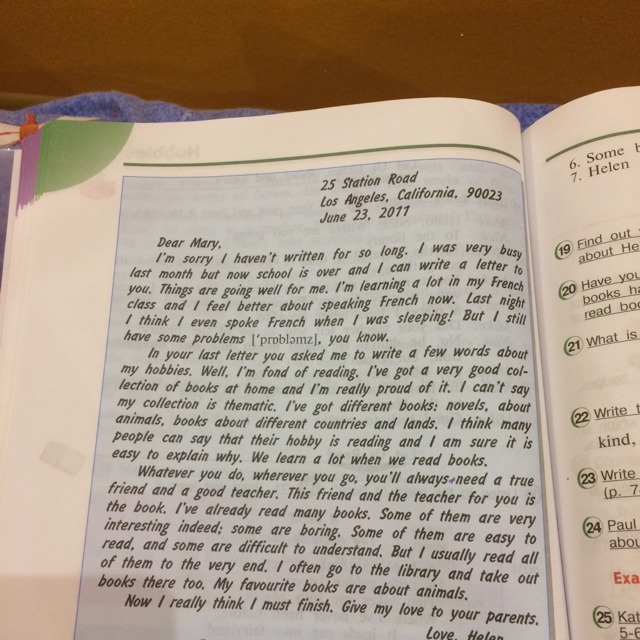 25 Station Road
Los Angeles, California, 90023
June 23, 2011
Dear Mary,
I'm sorry I haven't written for so long. I was very busy
last month but now school is over and I can write a letter to
you. Things are going well for me. I'm learning a lot in my French
class and I feel better about speaking French now. Last night
I think I even spoke French when I was sleeping! But I still
have some problems [ˈprɒbləmz], you know.
In your last letter you asked me to write a few words about
my hobbies. Well, I'm fond of reading. I've got a very good col-
lection of books at home and I'm really proud of it. I can't say
my collection is thematic. I've got different books: novels, about
animals, books about different countries and lands. I think many
people can say that their hobby is reading and I am sure it is
easy to explain why. We learn a lot when we read books.
Whatever you do, wherever you go, you'll always need a true
friend and a good teacher. This friend and the teacher for you is
the book. I've already read many books. Some of them are very
interesting indeed; some are boring. Some of them are easy to
read, and some are difficult to understand. But I usually read all
of them to the very end. I often go to the library and take out
books there too. My favourite books are about animals.
Now I really think I must finish. Give my love to your parents.
Love, Helen
6. Some
7. Helen
19 Find out
about He
20 Have you
books ha
read boo
21 What is
22 Write t
kind,
23 Write
(p. 7
24 Paul
abou
Exa
25 Kat
5-